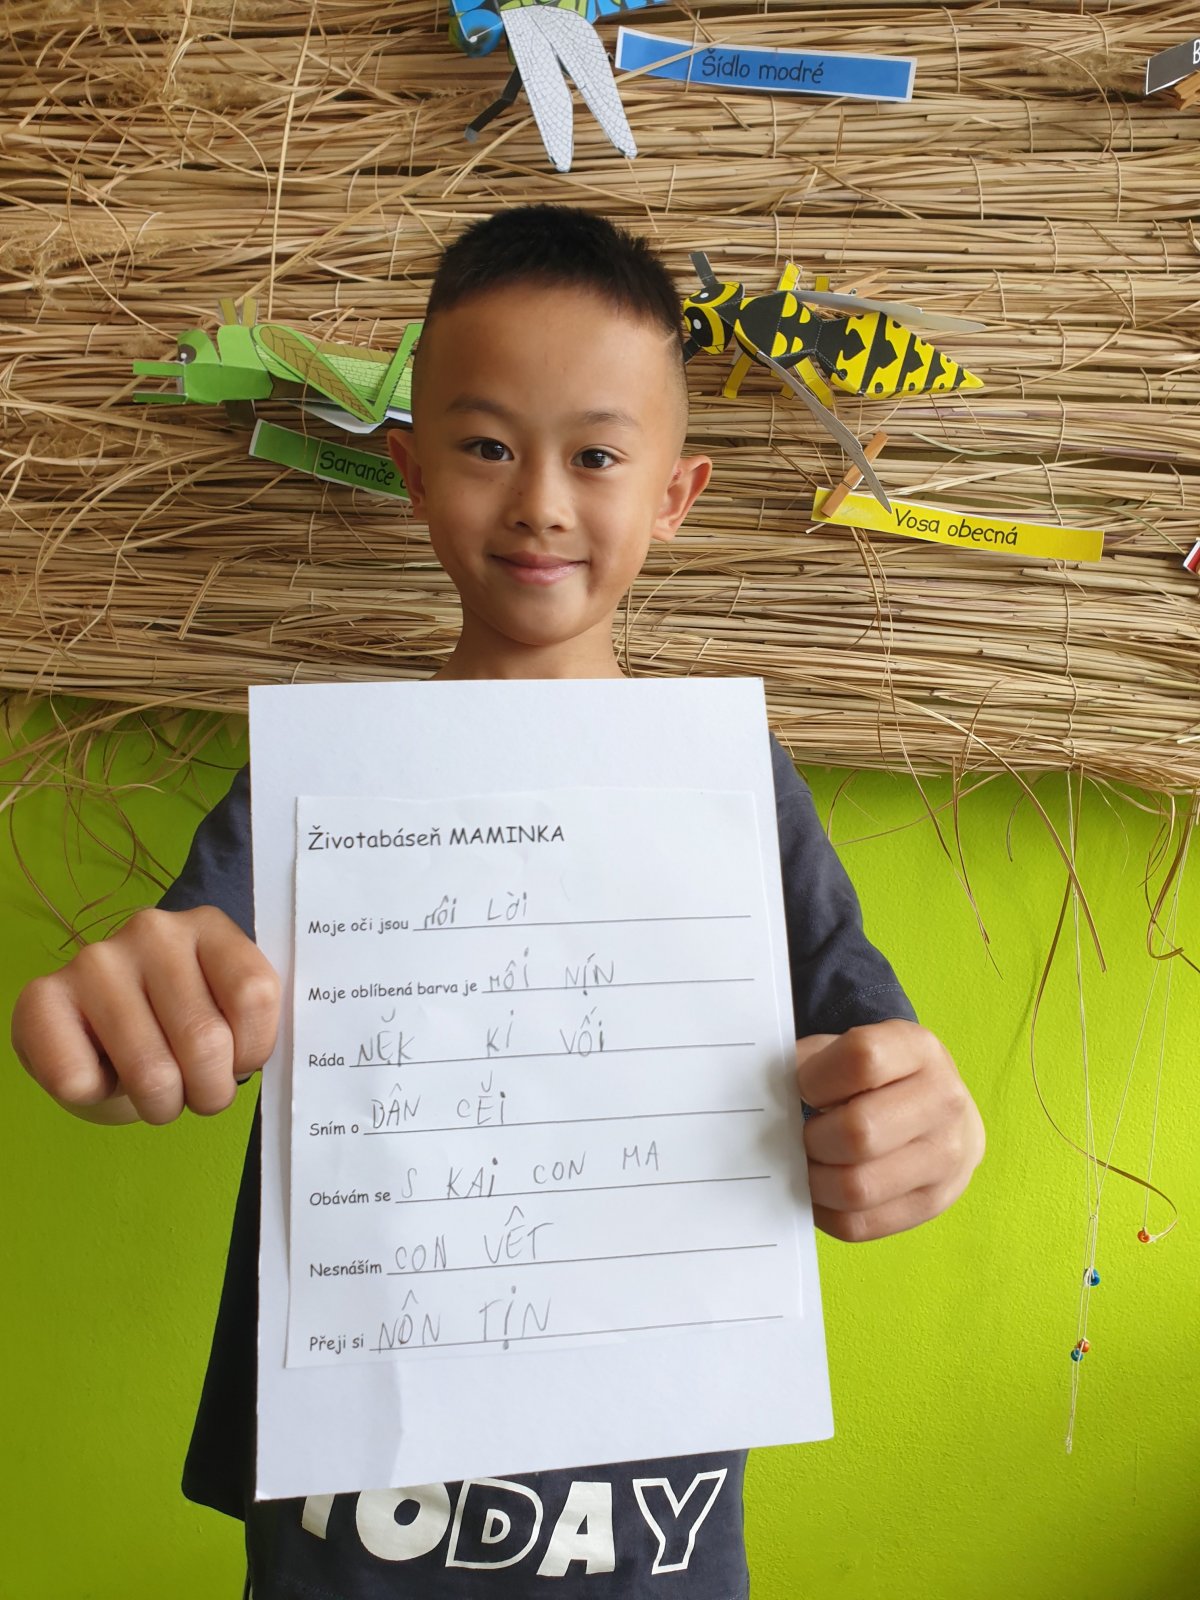 Šídlo modré
B
Saranče
Vosa obecná
Životabáseň MAMINKA
Moje oči jsou MÔI LỜI
Moje oblíbená barva je MÔI NỊ́N
Ráda NẸ̆K Ki VỐi
Sním o DÂN CĔi
Obávám se S KAi CON MA
Nesnáším CON VÊT
Přeji si NÔN TỊN
TODAY